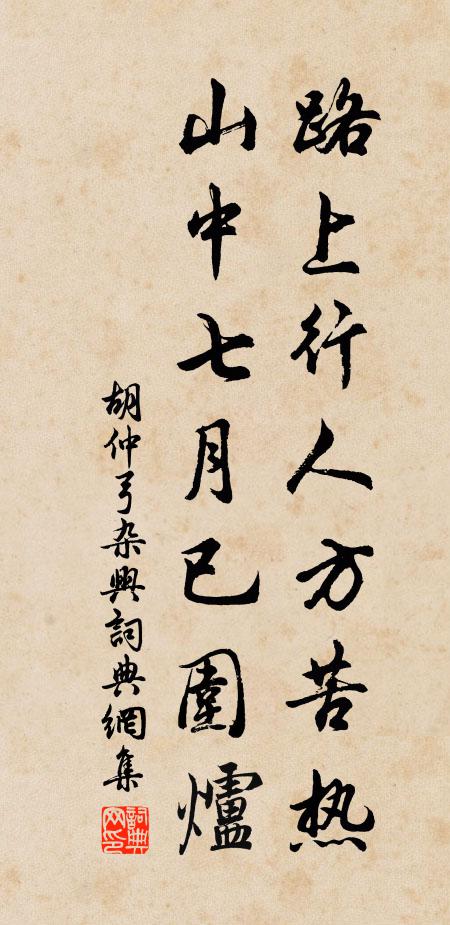 路上行人方苦热
山中七月已圍爐
胡仲弓杂興詞典網集
詞典网印